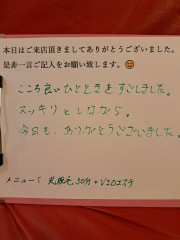 本日はご来店頂きましてありがとうございました。
是非一言ご記入をお願い致します。😊
こころ良いひとときをすごしました。
スッキリとしながら。
今日も、ありがとうございました。
メニュー「光脱毛30分+